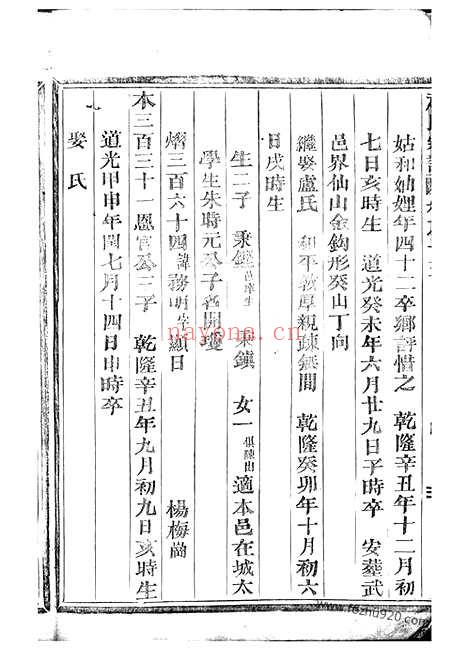 姑和妯娌年四十二卒鄉評惜之 乾隆辛丑年十二月初
七日亥時生 道光癸未年六月廿九日子時卒 安墓武
邑界仙山金鈎形癸山丁向
繼娶盧氏 和平敦厚親疎無間 乾隆癸卯年十月初六
日戌時生
生二子 秉鐘 邑庠生 秉鎮 女一 俱陳出 適本邑在城太
學生朱時元公子名開瓊
熠三百六十四 諱務明字顯日 楊梅崗
本三百三十一恩官公三子 乾隆辛丑年九月初九日亥時生
道光甲申年閏七月十四日申時卒
娶氏
nayona.cn
www.fozhu920.com